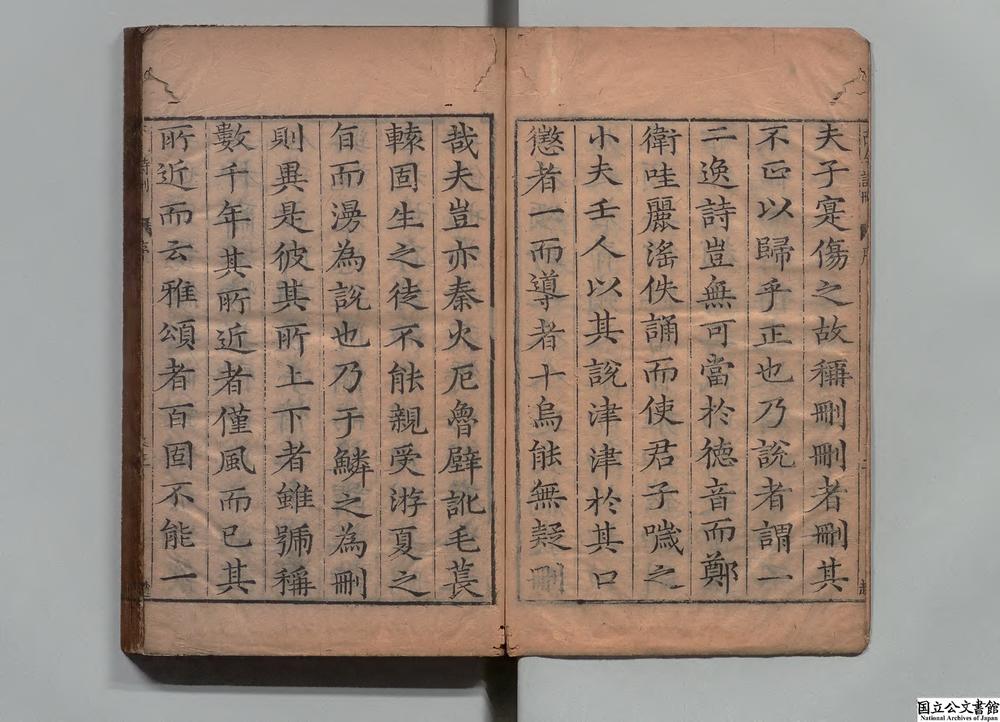 夫子寔傷之故稱刪刪者刪其
不正以歸乎正也乃說者謂一
二逸詩豈無可當於德音而鄭
衛哇麗滛佚誦而使君子嘅之
小夫壬人以其說津津於其口
懲者一而導者十烏能無疑刪
哉夫豈亦秦火厄魯壁訛毛萇
轅固生之徒不能親受游夏之
旨而漫為說也乃于鱗之為刪
則異是彼其所上下者雖號稱
數千年其所近者僅風而已其
所近而云雅頌者百固不能一
国立公文書館
National Archives of Japan